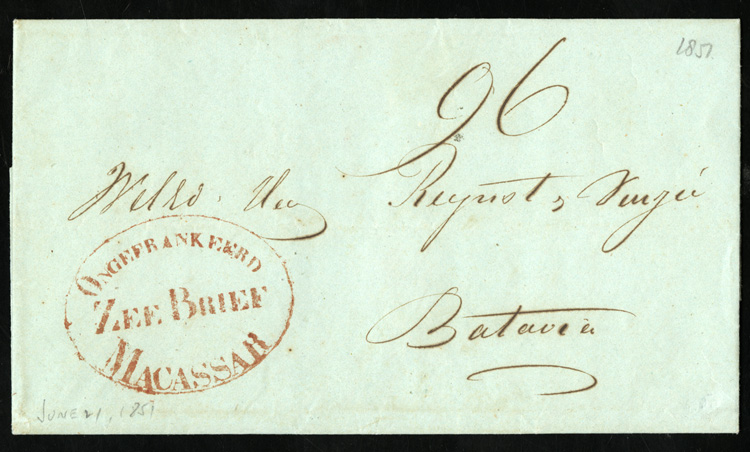 1851
96
Reynst & Vinju
ONGEFRANKEERD
ZEE BRIEF
MACASSAR
Batavia
JUNE 21, 1851